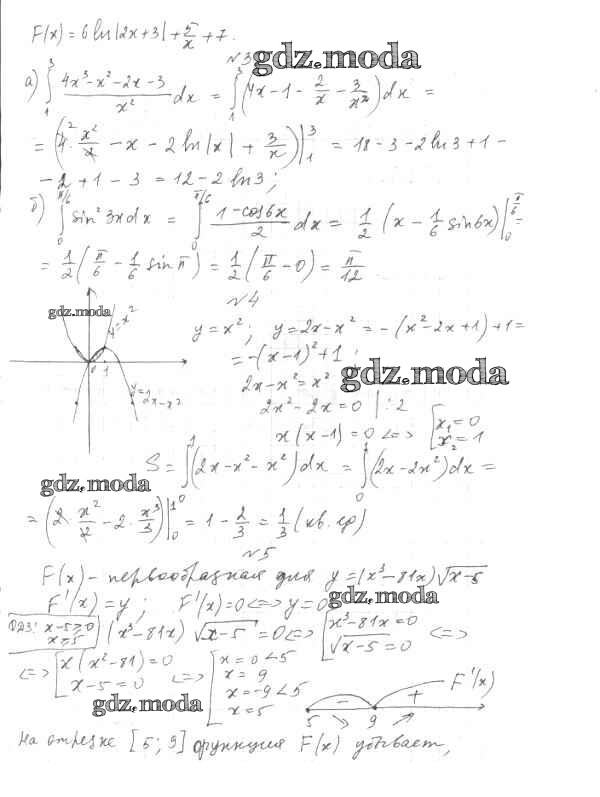 F(x) = 6 ln|2x+3| + 5/x + 7.
N3
gdz.moda
а) ∫₁³ (4x³-x²-2x-3)/x² dx = ∫₁³ (4x-1-2/x-3/x²)dx =
= (4·x²/2 - x - 2 ln|x| + 3/x)|₁³ = 18-3-2ln3+1-
-2+1-3 = 12-2ln3;
б) ∫₀^(π/6) sin²3x dx = ∫₀^(π/6) (1-cos6x)/2 dx = 1/2 (x - 1/6 sin6x)|₀^(π/6) =
= 1/2 (π/6 - 1/6 sin π) = 1/2 (π/6 - 0) = π/12
N4
gdz.moda
y=x²
0 1
y=2x-x²
y = x²; y=2x-x² = -(x²-2x+1)+1=
= -(x-1)²+1;
2x-x²=x²
gdz.moda
2x²-2x=0 |:2
x(x-1)=0 <=> [x₁=0
x₂=1
S = ∫₀¹(2x-x²-x²)dx = ∫₀¹(2x-2x²)dx =
gdz.moda
= (2·x²/2 - 2·x³/3)|₀¹ = 1 - 2/3 = 1/3 (кв. ер)
N5
F(x) - первообразная для y=(x³-81x)√x-5
F'(x)=y; F'(x)=0<=>y=0
gdz.moda
ОДЗ: x-5≥0
x≥5
(x³-81x)√x-5 =0<=> [x³-81x=0
√x-5=0 <=>
<=> [x(x²-81)=0
x-5=0 <=> [x=0<5
x=9
x=-9<5
x=5
gdz.moda
- + F'(x)
5 9
На отрезке [5; 9] функция F(x) убывает,